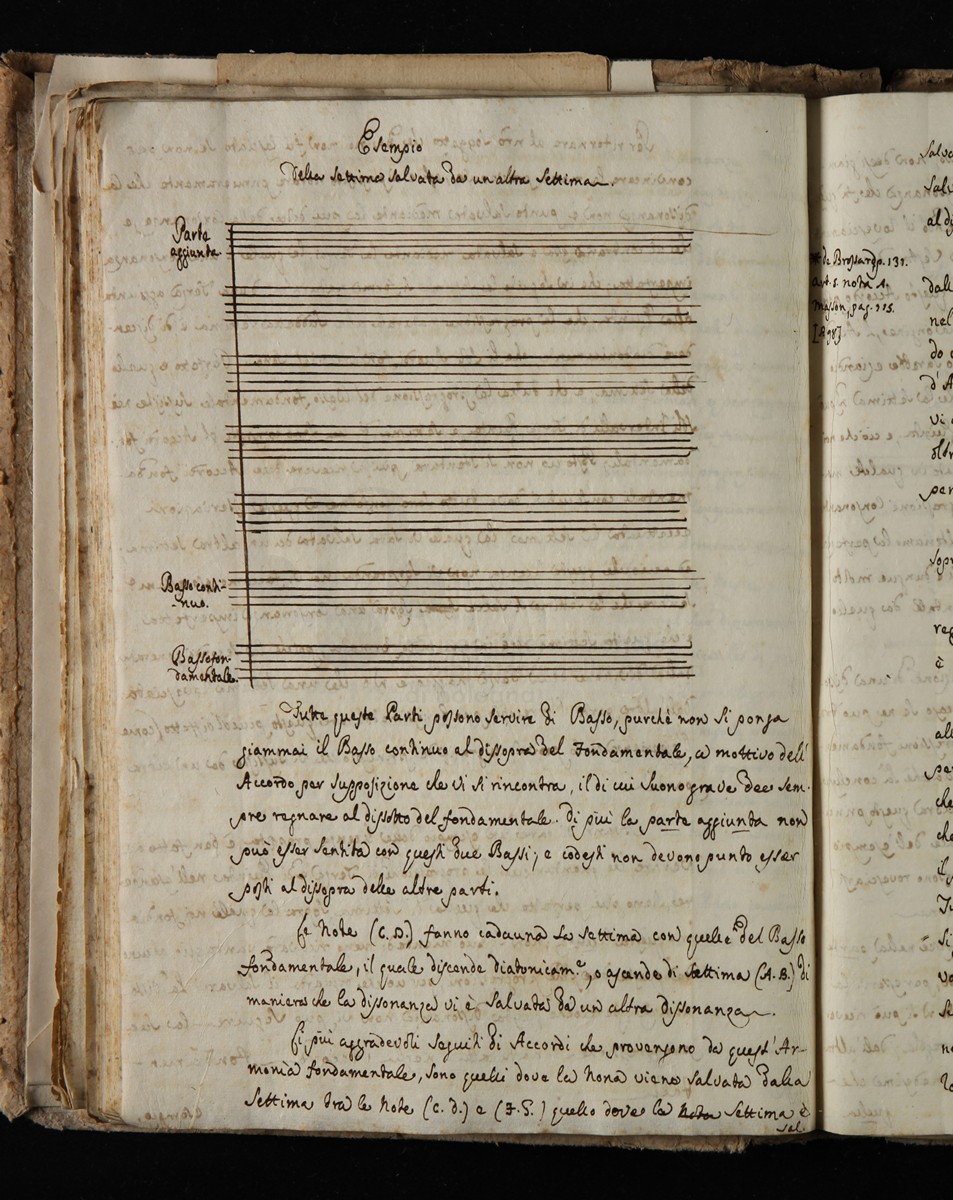 Esempio
Della settima salvata da un altra settima.
Parte
aggiunta.
Basso conti-
-nuo.
Basso fon-
damentale.
Tutte queste Parti possono servire di Basso, purchè non si ponga
giammai il Basso continuo al dissopra del Fondamentale, a mottivo dell'
Accordo per supposizione che vi si rincontra, il di cui suono grave dee sem-
pre regnare al dissotto del fondamentale. di più la parte aggiunta non
può esser sentita con questi due Bassi; e codesti non devono punto esser
posti al dissopra delle altre parti.
Le Note (C. D.) fanno cadauna la settima con quelle del Basso
fondamentale, il quale discende diatonicam.e, o ascende di settima (A. B.) di
maniera che la dissonanza vi è salvata da un altra dissonanza.
Li più aggradevoli seguiti di Accordi che provengono da quest' Ar-
monia fondamentale, sono quelli dove la Nona viene salvata dalla
settima tra le Note (C. D.) e (F. G.) quello dove la settima è
sal.
de Brossard p. 131.
art. 5. nota 1.
Masson, pag. 115.
Salva
Salv
al di
dall
nel
do
d'A
vi
oltr
per
sopr
reg
è
all
per
che
che
il